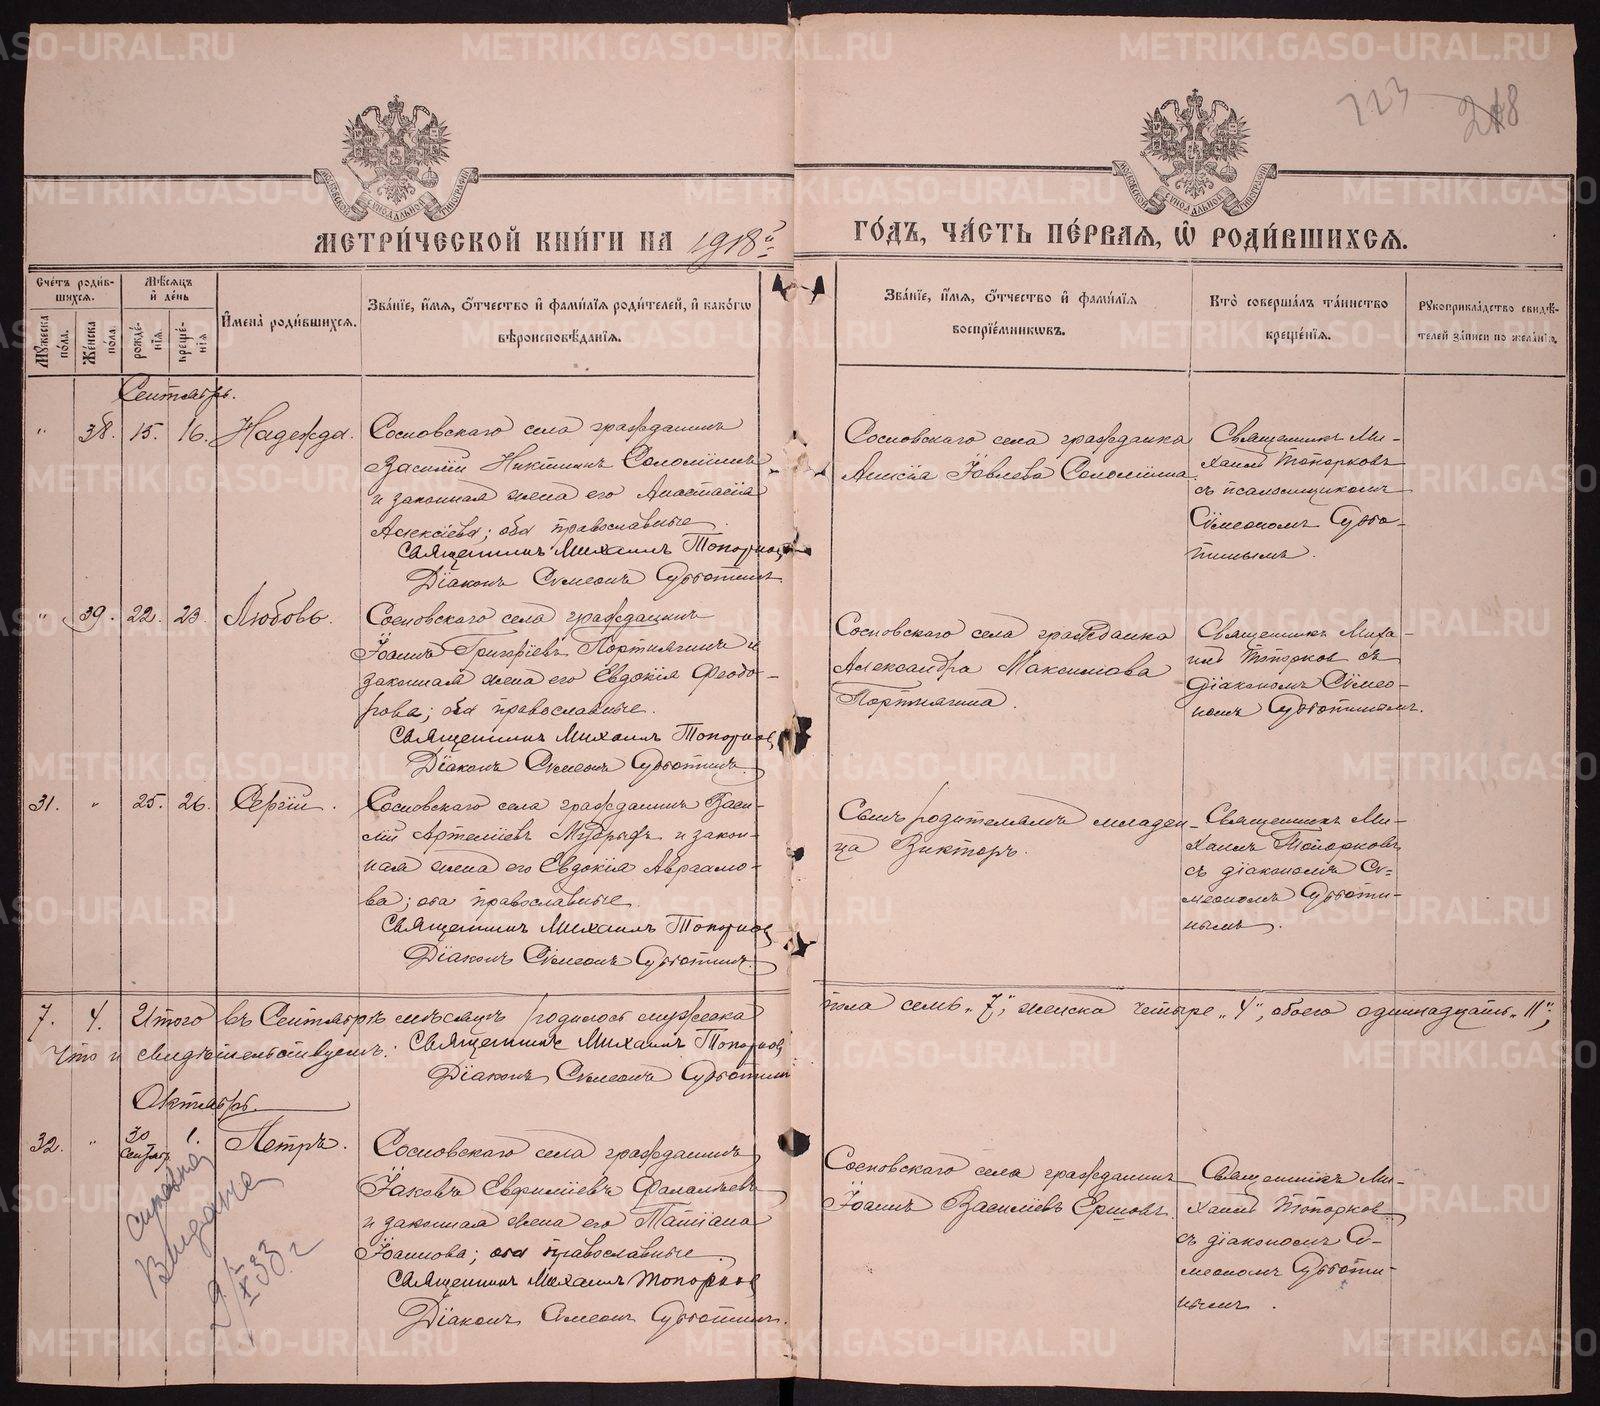 723 218
МЕТРИ́ЧЕСКОЙ КНИ́ГИ НА 1918 й ГО́ДЪ, ЧА́СТЬ ПЕ́РВАЯ, Ѡ҆ РОДИ́ВШИХСЯ.
Сче́тъ роди́в-
шихся.
Мѣ́сяцъ
и҆ де́нь
Мꙋ́жеска
по́ла.
Же́нска
по́ла.
рожде́-
нїя.
креще́-
нїя
И҆мена̀ роди́вшихся.
Зва́нїе, и҆́мя, ѻ҆́тчество и҆ фами́лїя роди́телей, и҆ како́гѡ
вѣроисповѣ́данїя.
Зва́нїе, и҆́мя, ѻ҆́тчество и҆ фами́лїя
воспрїе́мникѡвъ.
Кто̀ соверша́лъ та́инство
креще́нїя.
Рꙋкоприкла́дство свидѣ́-
телей за́писи по жела́нїю.
Сентябрь.
" 38. 15. 16. Надежда.
Сосновскаго села гражданинъ
Василій Никитинъ Соломинъ
и законная жена его Анастасія
Алексіева; оба православные.
Священникъ Михаилъ Топорков
Діаконъ Сѵмеонъ Субботинъ
Сосновскаго села гражданка
Анисія Іовлева Соломина.
Священникъ Ми-
хаилъ Топорковъ
съ псаломщикомъ
Сѵмеономъ Суббо-
тинымъ.
" 39. 22. 23. Любовь.
Сосновскаго села гражданинъ
Іоаннъ Григоріевъ Портнягинъ и
законная жена его Евдокія Феодо-
рова; оба православные.
Священникъ Михаилъ Топорков
Діаконъ Сѵмеонъ Субботинъ
Сосновскаго села гражданка
Александра Максимова
Портнягина.
Священникъ Миха-
илъ Топорков съ
діакономъ Сѵмео-
номъ Субботинымъ.
31. " 25. 26. Сергій.
Сосновскаго села гражданинъ Васи-
лій Артеміевъ и закон-
ная жена его Евдокія Авраамо-
ва; оба православные.
Священникъ Михаилъ Топорков
Діаконъ Сѵмеонъ Субботинъ.
Священникъ Ми-
хаилъ Топорковъ
съ діакономъ Сѵ-
меономъ Субботи-
нымъ.
Симъ родителямъ младен-
ца Викторъ.
7. 4. Итого въ Сентябрѣ мѣсяцѣ родилось мужска пола семь "7", женска четыре "4", обоего одинадцать "11";
Что и свидѣтельствуемъ: Священникъ Михаилъ Топорков
Діаконъ Сѵмеонъ Субботинъ
Октябрь.
32. " 30 Сентябр 1. Петръ.
Сосновскаго села гражданинъ
Іаковъ Евфиміевъ
и законная жена его Татіана
Іоаннова; оба православные.
Священникъ Михаилъ Топорков
Діаконъ Сѵмеонъ Субботинъ.
Сосновскаго села гражданинъ
Іоаннъ Василіевъ Ершовъ.
Священникъ Ми-
хаилъ Топорков
съ діакономъ Сѵ-
меономъ Субботи-
нымъ.
справка
Выдана
9/X 33 г
METRIKI.GASO-URAL.RU